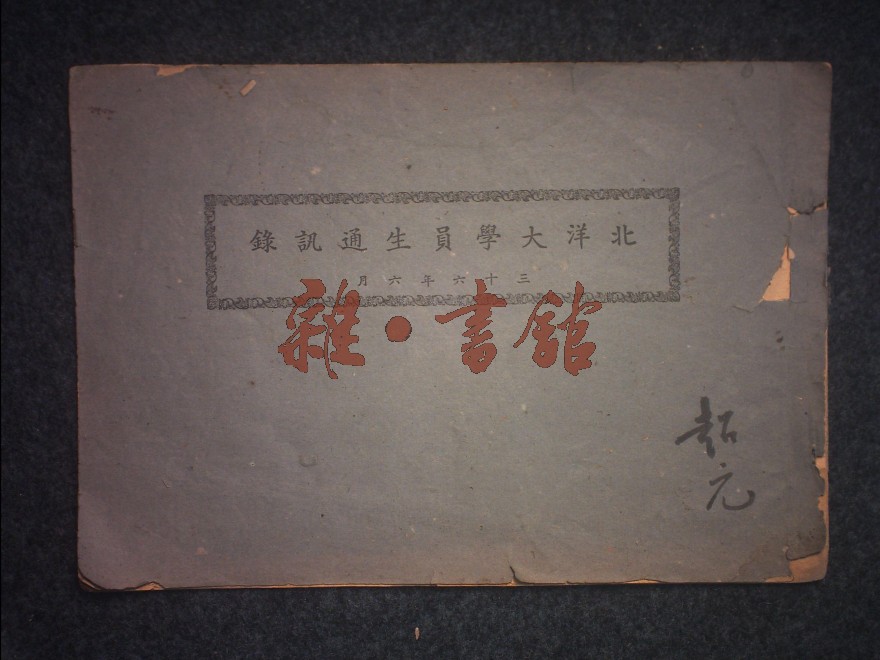 北洋大學員生通訊錄
三十六年六月
雜·書館
超元